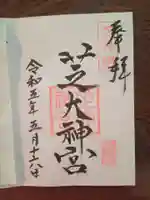 奉拝
芝大神宮
令和五年五月十六日